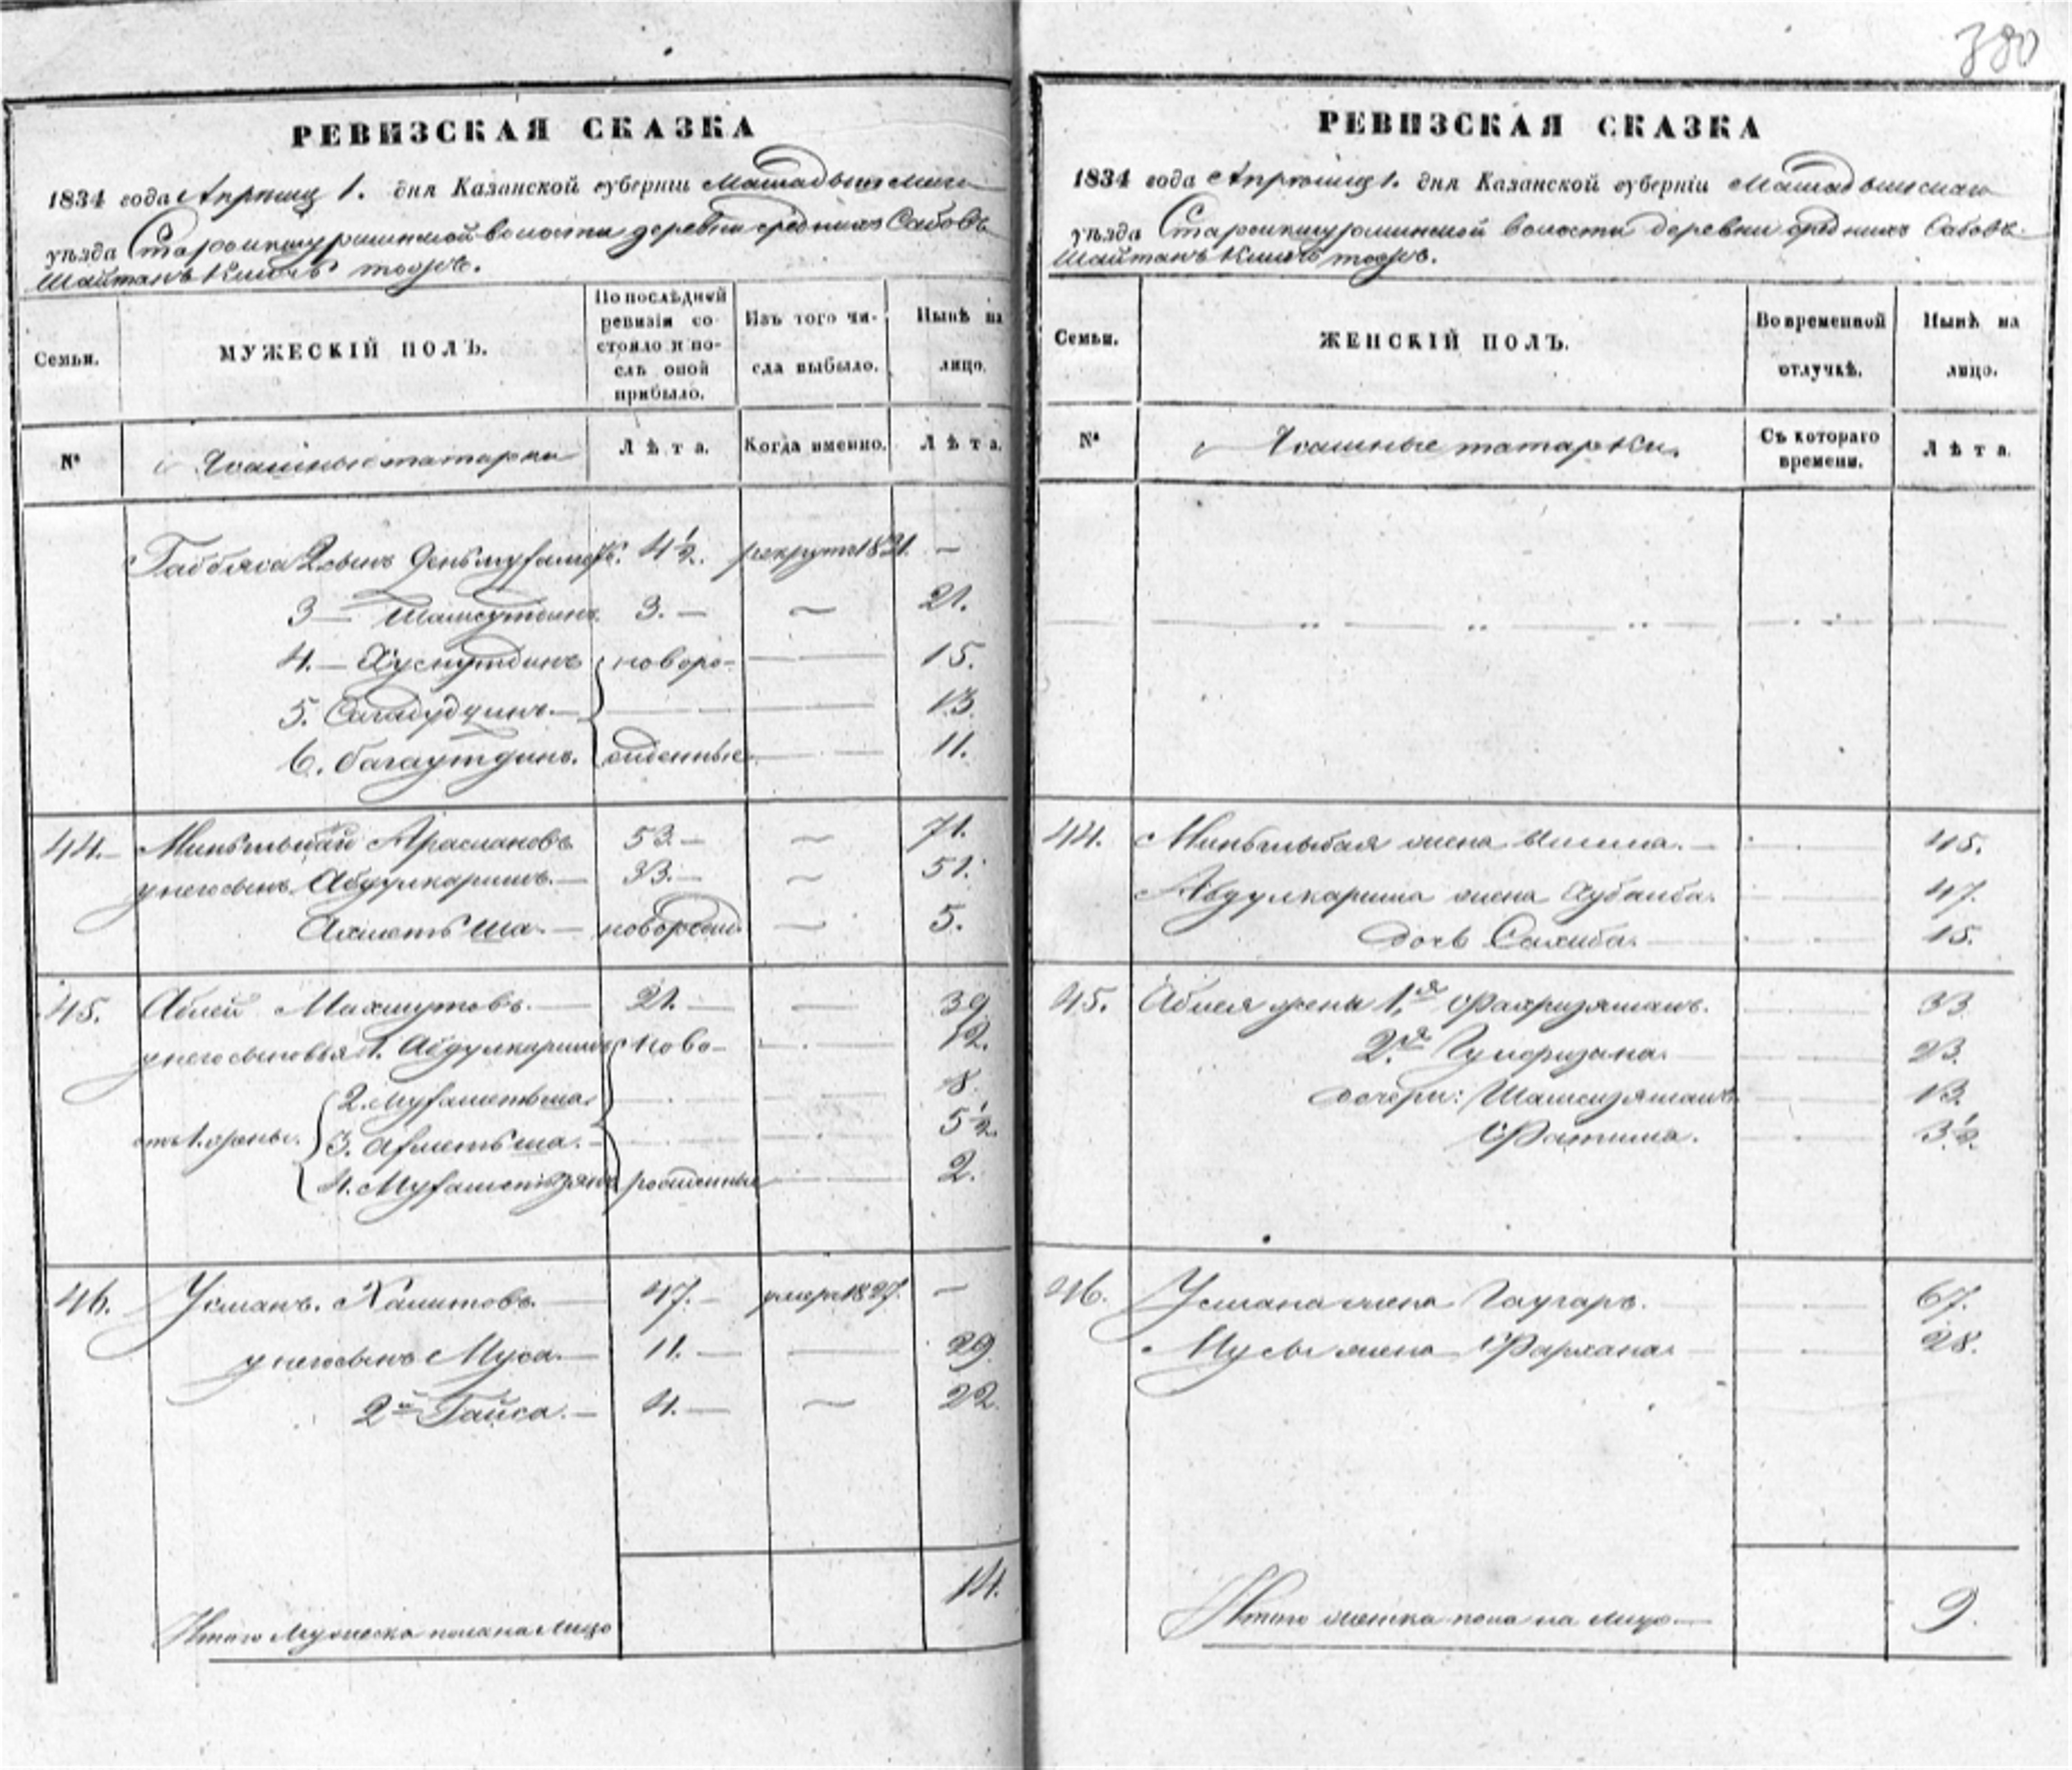 380
РЕВИЗСКАЯ СКАЗКА
1834 года Апреля 1. дня Казанской губерніи Мамадышскаго
уѣзда Староикшурминской волости деревни средних Сабовъ
Шайтанъ Ключь тожъ.
Семьи.
МУЖЕСКІЙ ПОЛЪ.
По послѣдней ревизіи состояло и послѣ оной прибыло.
Изъ того числа выбыло.
Нынѣ на лицо.
№
татары
Лѣта.
Когда именно.
Лѣта.
Габбяса 2 сынъ 4½. рекрутъ 1831. —
3 — Шамсутдинъ 3. — — 21.
4. — Хуснутдинъ новоро- — 15.
5. Сагадудцинъ. — — 13.
6. Багаутдинъ. жденные — 11.
44. Миньлыбай Араслановъ 53. — — 71.
у него сынъ Абдулкаримъ. — 33. — — 51.
Ахметь ша. — новорожд. — 5.
45. Аблей Махмутовъ. — 21. — — 39
у него сыновья 1. Абдулкаримъ ново- — 12.
2. Мухаметьша. — 8.
от 1. жены. 3. Ахметь ша. — 5½
4. Мухаметьзянъ рожденные — 2.
46. Усманъ. Хамитовъ. — 47. — умеръ 1827. —
у него сынъ Муса. — 11. — — 29
2й Гайса. — 4. — — 22.
14.
Итого Мужеска пола на Лицо
РЕВИЗСКАЯ СКАЗКА
1834 года Апреля 1. дня Казанской губерніи Мамадышскаго
уѣзда Староикшурминской волости деревни средних Сабовъ.
Шайтанъ Ключъ тожъ.
Семьи.
ЖЕНСКІЙ ПОЛЪ.
Во временной отлучкѣ.
Нынѣ на лицо.
№
татарки.
Съ котораго времени.
Лѣта.
44. Миньлыбая жена — 45.
Абдулкарима жена Хубаиба. — 47.
дочь Сахиба. — 15.
45. Аблея жены 1,я Фахризяманъ. 33
2,я — 23.
дочери: Шамсизяманъ — 13.
Фатима. — 3½.
46. Усмана жена Гаугаръ. — 67.
Мусы жена Фархана — 28.
Итого женска пола на лицо — 9.